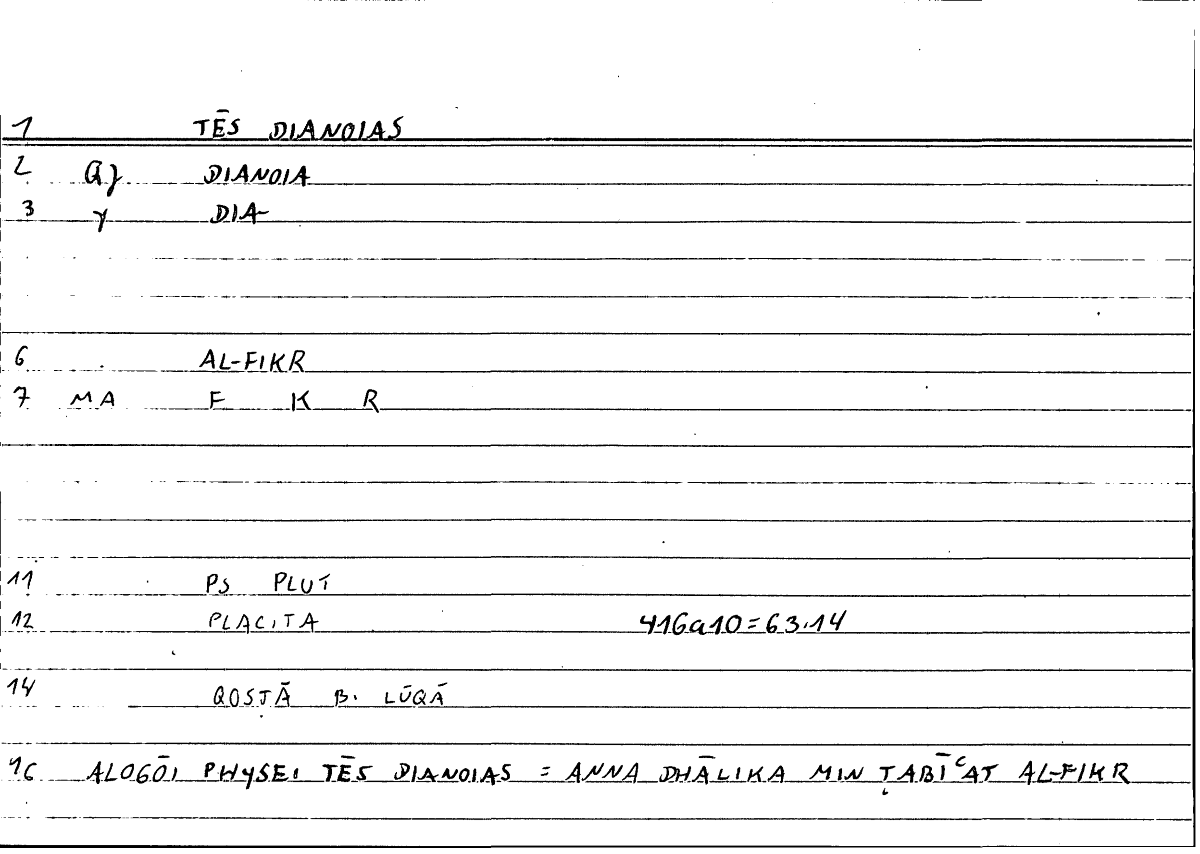 1 TĒS DIANOIAS
2 a} DIANOIA
3 γ DIA-
6 AL-FIKR
7 MA F K R
11 PS PLUT
12 PLACITA 416a10=63.14
14 QOSṬĀ B. LŪQĀ
16 ALOGŌI PHYSEI TĒS DIANOIAS = ANNA DHĀLIKA MIN ṬABĪʿAT AL-FIKR